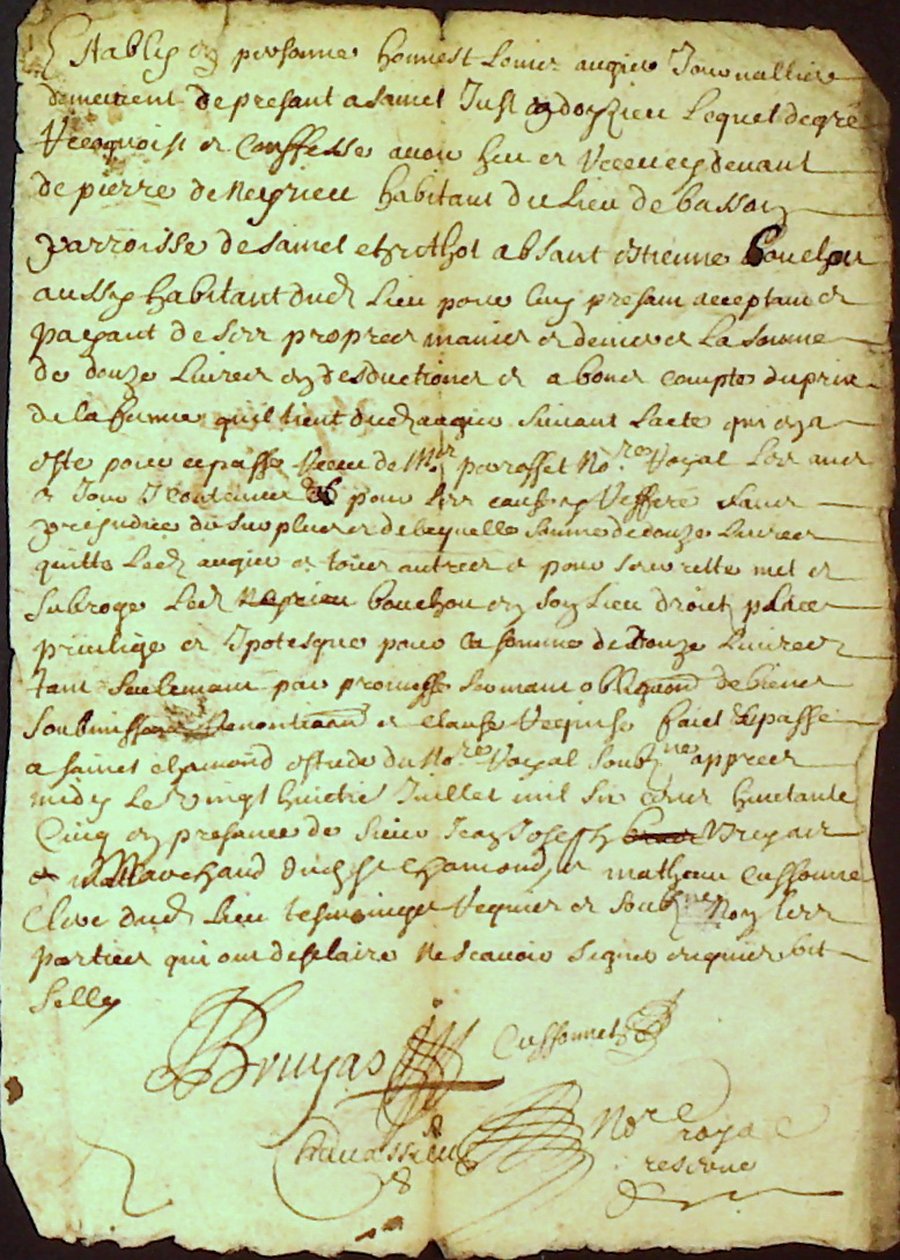 Establÿ en personne honnest Louis augier Journallier
demeurent de presant a sainct Just en doyzieu Lequel de gré
Recognoist et Conffesse avoir heu et Receu cy devant
de pierre de Neyrieu habitant du Lieu de bassay
parroisse de sainct absant estienne bouchon
aussy habitant dud Lieu pour luy presant acceptant et
payant de ses propres mains et deniers La somme
de douze Livres en desductiones et a bons compte du prix
de la ferme quil tient dud augier suivant Lacte qui en a
esté pour ce passé Receu de Mr parosset Nore Royal Les an
et Jour y contenus pour les causes Refferé sans
prejudice du surplus et de laquelle somme de douze Livres
quitte Led augier et tous autres et pour seurette met et
subroge Led Neyrieu bouchon en son Lieu droict place
privilege et Ipotesque pour la somme de douze Livres
tant seulemant par promesse sermant obligaond de biens
soubmissons Renontiaond et clause Requise faict et passé
a sainct chamond estude du Nore Royal soubzne appres
midy Le vingt huictie Juillet mil six cens huictante
Cinq en presance de sieur Jean Joseph Bruyas
Marchand dud St Chamond et mathieu Cussonne
Clerc dud Lieu tesmoings Requis et soubznes Non les
parties qui ont desclaire Ne scavoir signer enquis et
selly
Bruyas Cussonnet
Nore
royal
reservé